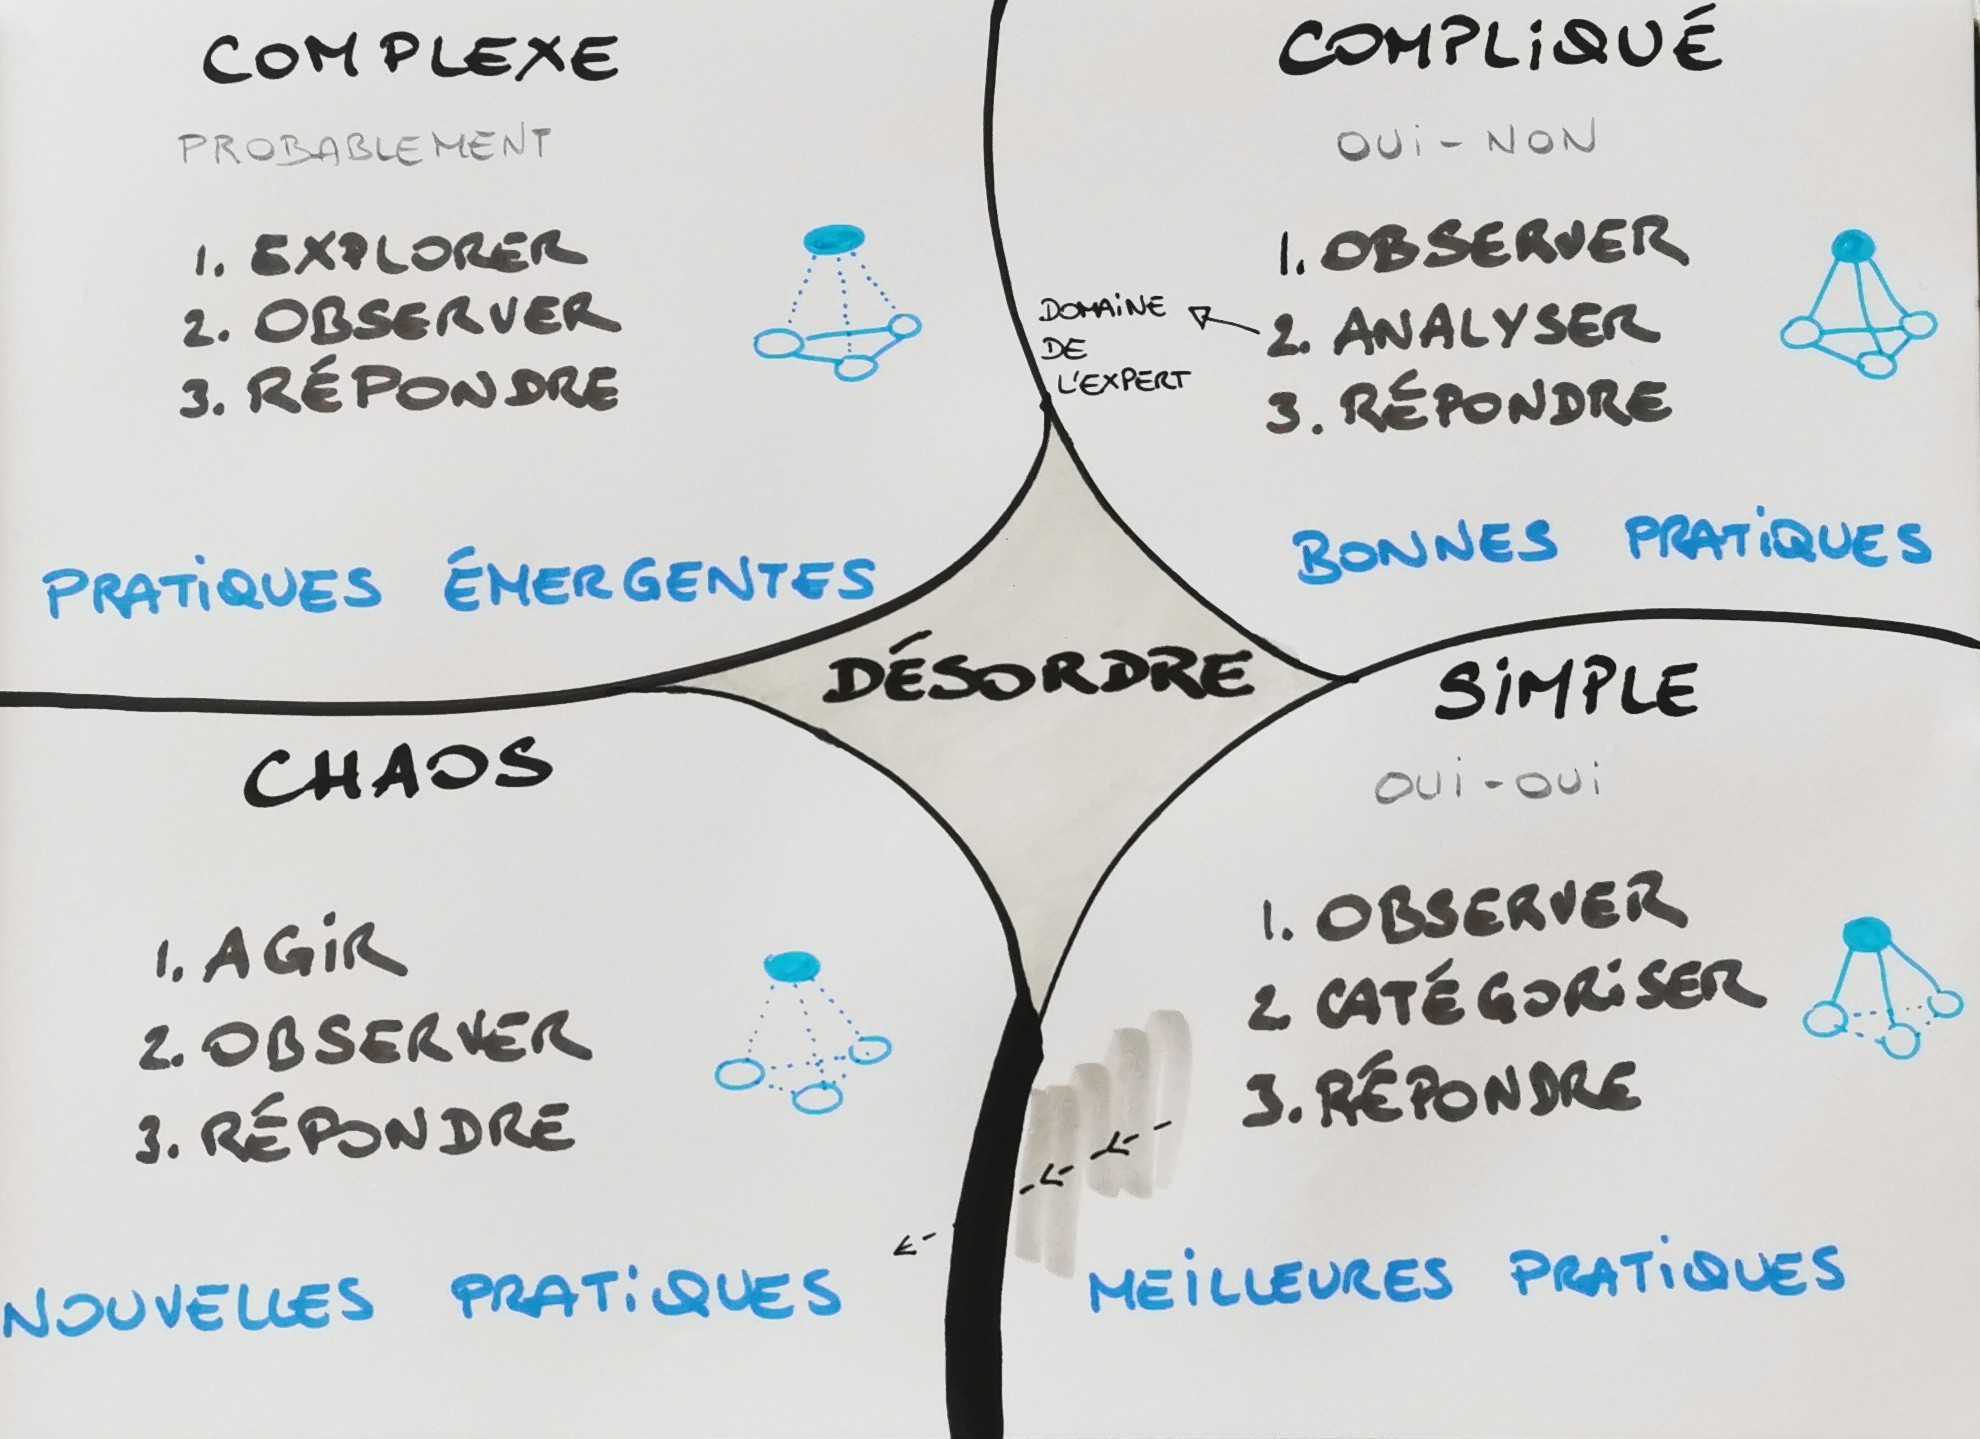 COMPLEXE
PROBABLEMENT
1. EXPLORER
2. OBSERVER
3. RÉPONDRE
PRATIQUES ÉMERGENTES
COMPLIQUÉ
OUI - NON
1. OBSERVER
2. ANALYSER
3. RÉPONDRE
DOMAINE
DE
L'EXPERT
BONNES PRATIQUES
DÉSORDRE
CHAOS
1. AGIR
2. OBSERVER
3. RÉPONDRE
NOUVELLES PRATIQUES
SIMPLE
OUI - OUI
1. OBSERVER
2. CATÉGORISER
3. RÉPONDRE
MEILLEURES PRATIQUES